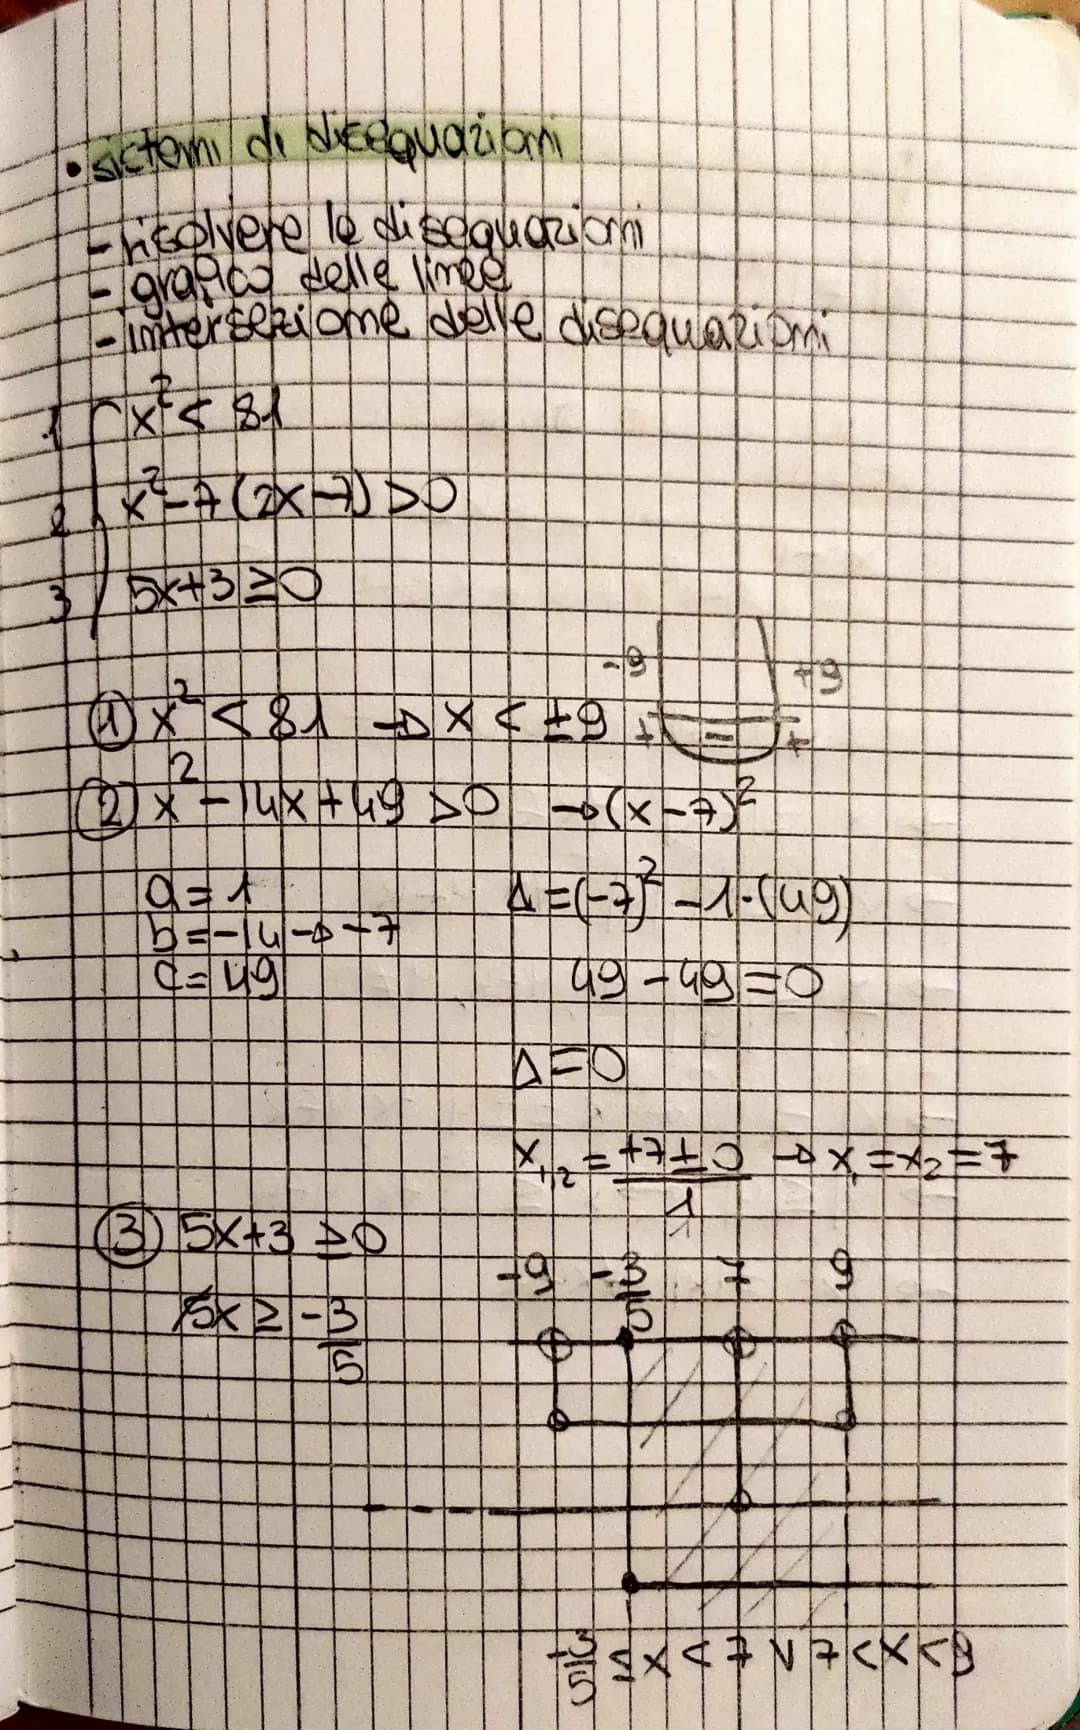 • sistemi di disequazioni
- risolvere le disequazioni
- grafico delle linee
- intersezione delle disequazioni
1 { x² < 81
2 x² - 7 (2x - 7) > 0
3 5x+3 ≥ 0
-9 +9
① x² < 81 → x < ±9 + - +
② x² - 14x + 49 > 0 → (x - 7)²
a = 1 Δ = (-7)² - 1·(49)
b = -14 → -7
c = 49 49 - 49 = 0
Δ = 0
x₁,₂ = +7 ± 0 / 1 → x₁ = x₂ = 7
③ 5x+3 ≥ 0
-9 -3/5 7 9
5x ≥ -3/5
-3/5 ≤ x < 7 ∨ 7 < x < 9